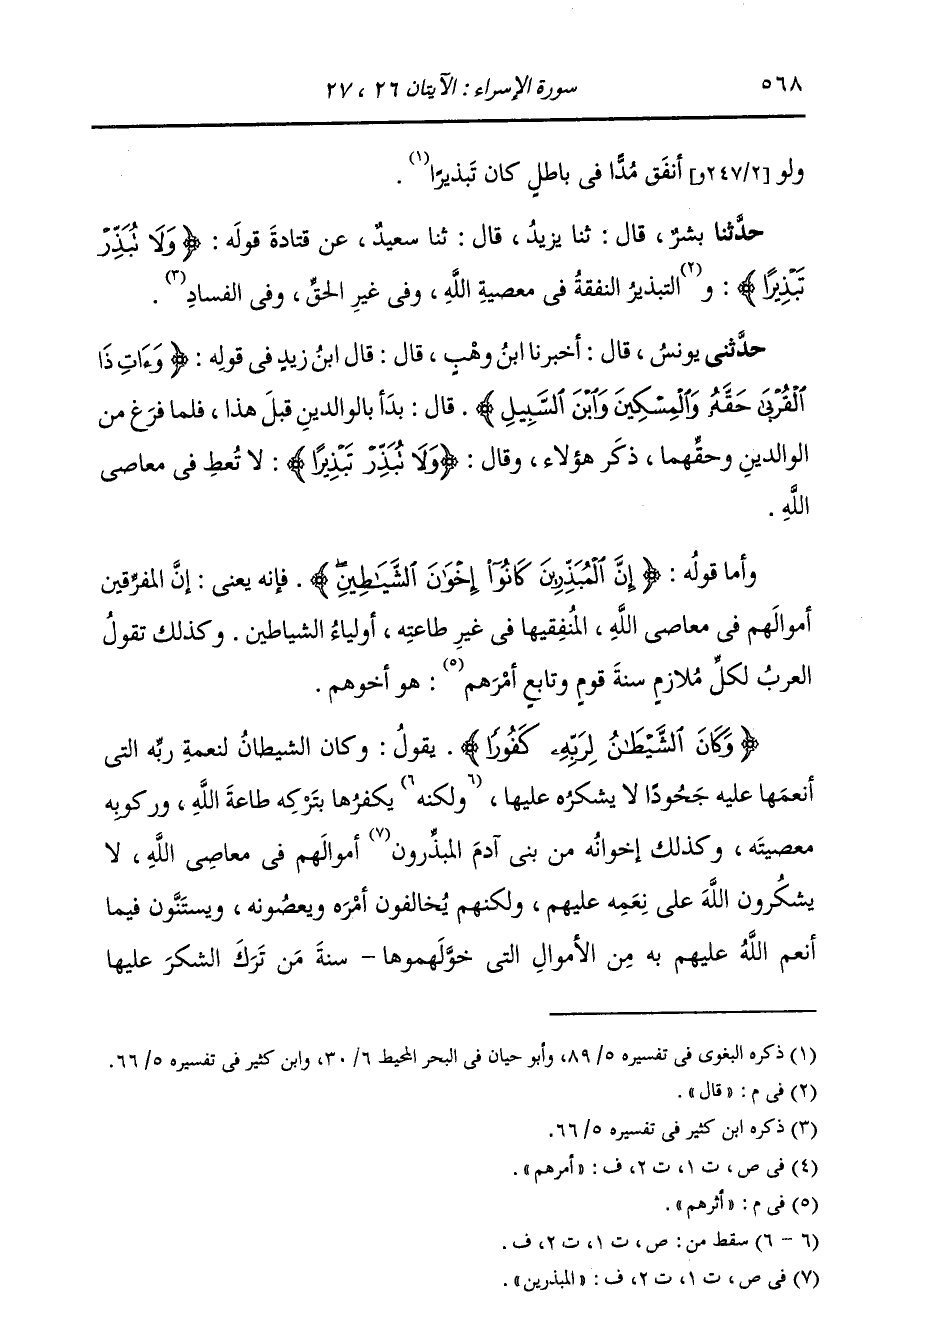 ٥٦٨ سورة الإسراء : الآيتان ٢٦ ، ٢٧
ولو [٢٤٧/٢و] أنفَق مُدًّا فى باطلٍ كان تَبذيرًا(١) .
حدَّثنا بشرٌ ، قال : ثنا يزيدُ ، قال : ثنا سعيدٌ ، عن قتادةَ قولَه : ﴿ وَلَا نُبَذِّرْ
تَبْذِيرًا ﴾ : و(٢)التبذيرُ النفقةُ فى معصيةِ اللَّهِ ، وفى غيرِ الحقِّ ، وفى الفسادِ(٣) .
حدَّثنى يونسُ ، قال : أخبرنا ابنُ وهْبٍ ، قال : قال ابنُ زيدٍ فى قولِه : ﴿ وَءَاتِ ذَا
ٱلْقُرْبَىٰ حَقَّهُۥ وَٱلْمِسْكِينَ وَٱبْنَ ٱلسَّبِيلِ ﴾ . قال : بدَأ بالوالدينِ قبلَ هذا ، فلما فرَغ من
الوالدينِ وحقِّهما ، ذكَر هؤلاء ، وقال : ﴿وَلَا نُبَذِّرْ تَبْذِيرًا ﴾ : لا تُعطِ فى معاصى
اللَّهِ .
وأما قولُه : ﴿ إِنَّ ٱلْمُبَذِّرِينَ كَانُوٓا۟ إِخْوَٰنَ ٱلشَّيَـٰطِينِۖ ﴾ . فإنه يعنى : إنَّ المفرِّقين
أموالَهم فى معاصى اللَّهِ ، المُنفِقيها فى غيرِ طاعتِه ، أولياءُ الشياطين . وكذلك تقولُ
العربُ لكلِّ مُلازمٍ سنةَ قومٍ وتابعٍ أمْرَهم(٥) : هو أخوهم .
﴿ وَكَانَ ٱلشَّيْطَـٰنُ لِرَبِّهِۦ كَفُورًا ﴾ . يقولُ : وكان الشيطانُ لنعمةِ ربِّه التى
أنعمَها عليه جَحُودًا لا يشكرُه عليها ، (٦ولكنه٦) يكفرُها بتَرْكِه طاعةَ اللَّهِ ، وركوبِه
معصيتَه ، وكذلك إخوانُه من بنى آدمَ المبذِّرون(٧) أموالَهم فى معاصِى اللَّهِ ، لا
يشكُرون اللَّهَ على نِعَمِه عليهم ، ولكنهم يُخالفون أمْرَه ويعصُونه ، ويستَنُّون فيما
أنعم اللَّهُ عليهم به مِن الأموالِ التى خوَّلَهموها – سنةَ مَن تَرَكَ الشكرَ عليها
(١) ذكره البغوى فى تفسيره ٥/ ٨٩، وأبو حيان فى البحر المحيط ٦/ ٣٠، وابن كثير فى تفسيره ٥/ ٦٦.
(٢) فى م : «قال» .
(٣) ذكره ابن كثير فى تفسيره ٥/ ٦٦.
(٤) فى ص ، ت ١، ت ٢، ف : «أمرهم» .
(٥) فى م : «أثرهم» .
(٦ – ٦) سقط من : ص ، ت ١، ت ٢، ف .
(٧) فى ص ، ت ١، ت ٢، ف : «المبذرين» .